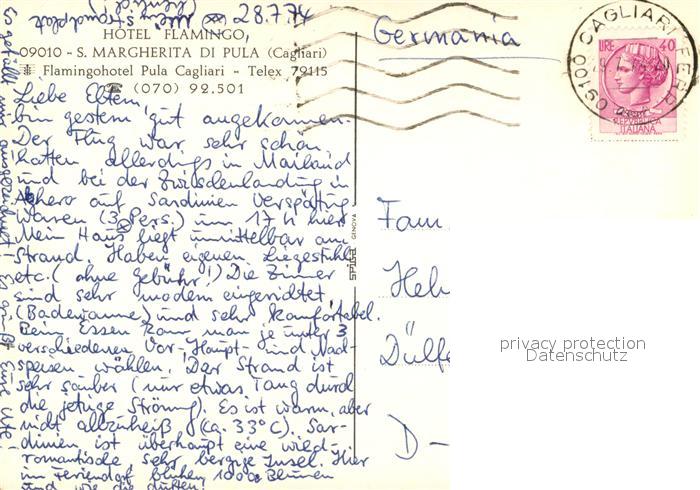 28.7.74
HOTEL FLAMINGO,
09010 - S. MARGHERITA DI PULA (Cagliari)
Flamingohotel Pula Cagliari - Telex 79115
☎ (070) 92.501
Liebe Eltern,
bin gestern gut angekommen.
Der Flug war sehr schön,
hatten allerdings in Mailand
und bei der Zwischenlandung in
Alghero auf Sardinien Verspätung
Waren (3 Pers.) um 17 h hier
Mein Haus liegt unmittelbar am
Strand. Haben eigenen Liegestuhl
etc. (ohne Gebühr!) Die Zimmer
sind sehr modern eingerichtet
(Badewanne) und sehr komfortabel.
Beim Essen kann man je unter 3
verschiedenen Vor-, Haupt- und Nach-
speisen wählen. Der Strand ist
sehr sauber (nur etwas Tang durch
die jetzige Strömung). Es ist warm, aber
nicht allzu heiß (ca. 33°C). Sar-
dinien ist überhaupt eine wild-
romantische sehr bergige Insel. Hier
im Feriendorf blühen 1000e Blumen
und wie die duften!
Es gefällt mir ausgezeichnet! Es grüßt Eure Ute
Mein Strandplatz
SPIGA GENOVA
Germania
09100 CAGLIARI FERR.
LIRE 40
REPVBBLICA
ITALIANA
Fam.
Hel
Dülfe
D-
privacy protection
Datenschutz